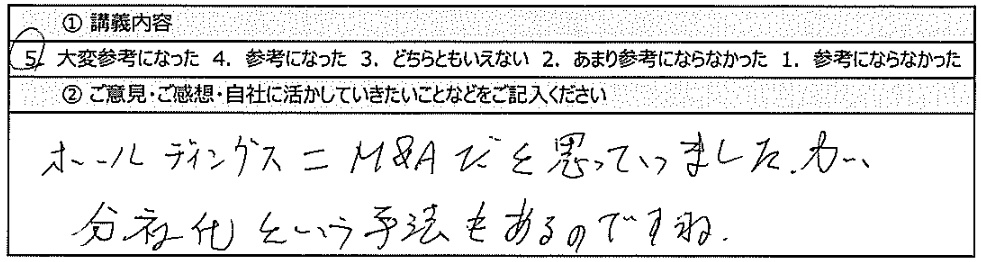 ① 講義内容
5. 大変参考になった 4. 参考になった 3. どちらともいえない 2. あまり参考にならなかった 1. 参考にならなかった
② ご意見・ご感想・自社に活かしていきたいことなどをご記入ください
ホールディングス=M&Aだと思っていました.が、
分社化という手法もあるのですね.